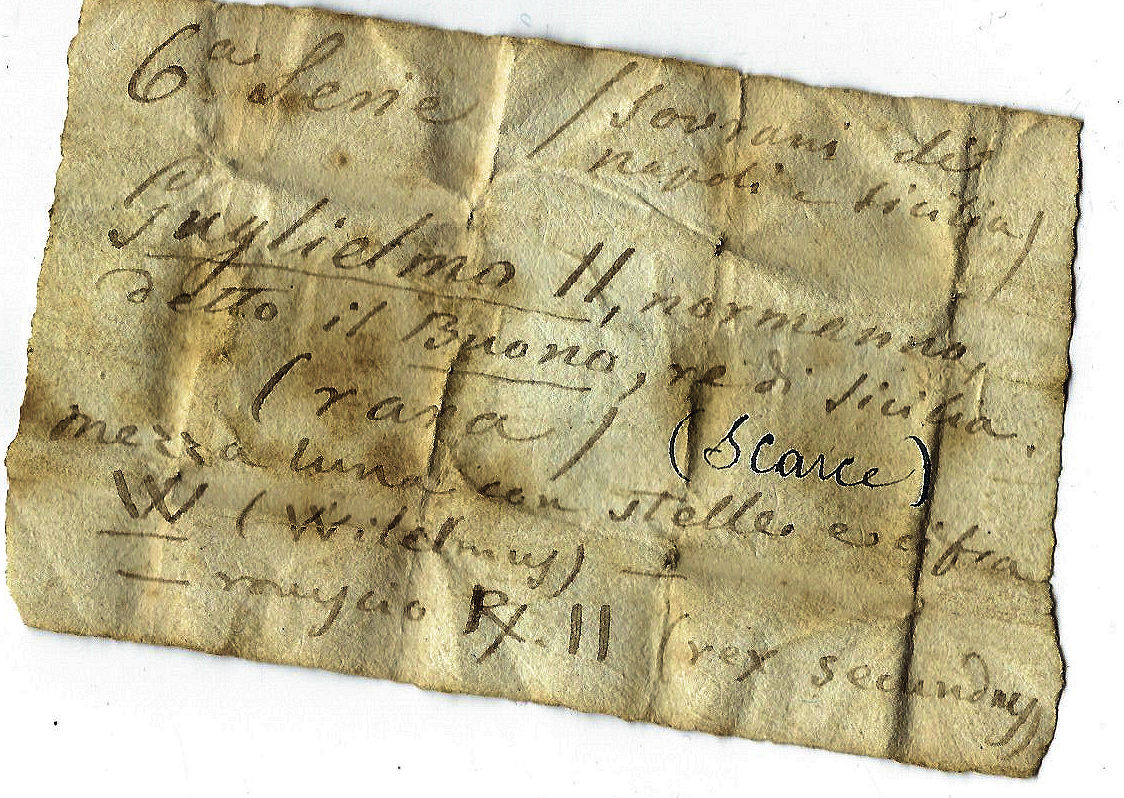 6.a Serie (sovrani di
napoli e sicilia)
Guglielmo II, normanno,
detto il Buono, re di sicilia.
(rara) (Scarce)
mezza luna con stelle e cifra
W (Wilelmus) —
— rovescio Rx. II (rex secundus)